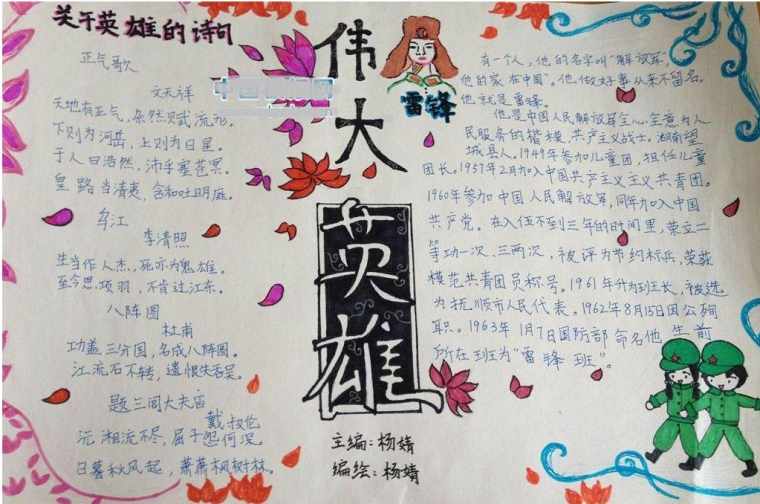 关于英雄的诗句
正气歌
文天祥
天地有正气，杂然赋流形。
下则为河岳，上则为日星。
于人曰浩然，沛乎塞苍冥。
皇路当清夷，含和吐明庭。
江
李清照
生当作人杰，死亦为鬼雄。
至今思项羽，不肯过江东。
八阵图
杜甫
功盖三分国，名成八阵图。
江流石不转，遗恨失吞吴。
题三闾大夫庙
戴叔伦
沅湘流不尽，屈子怨何深。
日暮秋风起，萧萧枫树林。
伟大
英雄
主编：杨婧
编绘：杨婧
雷锋
有一个人，他的名字叫“解放军，
他的家在中国”。他做好事从来不留名。
他就是雷锋。
他是中国人民解放军全心全意为人
民服务的楷模，共产主义战士。湖南望
城县人。1949年参加儿童团，担任儿童
团长。1957年2月加入中国共产主义主义共青团。
1960年参加中国人民解放军，同年加入中国
共产党。在入伍不到三年的时间里，荣立二
等功一次，三两次，被评为节约标兵，荣获
模范共青团员称号。1961年升为班长，被选
为抚顺市人民代表。1962年8月15日因公殉
职。1963年1月7日国防部命名他生前
所在班为“雷锋班”。